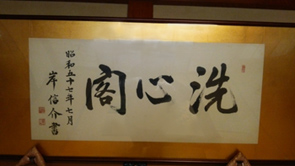 洗心閣
昭和五十七年七月
岸信介書